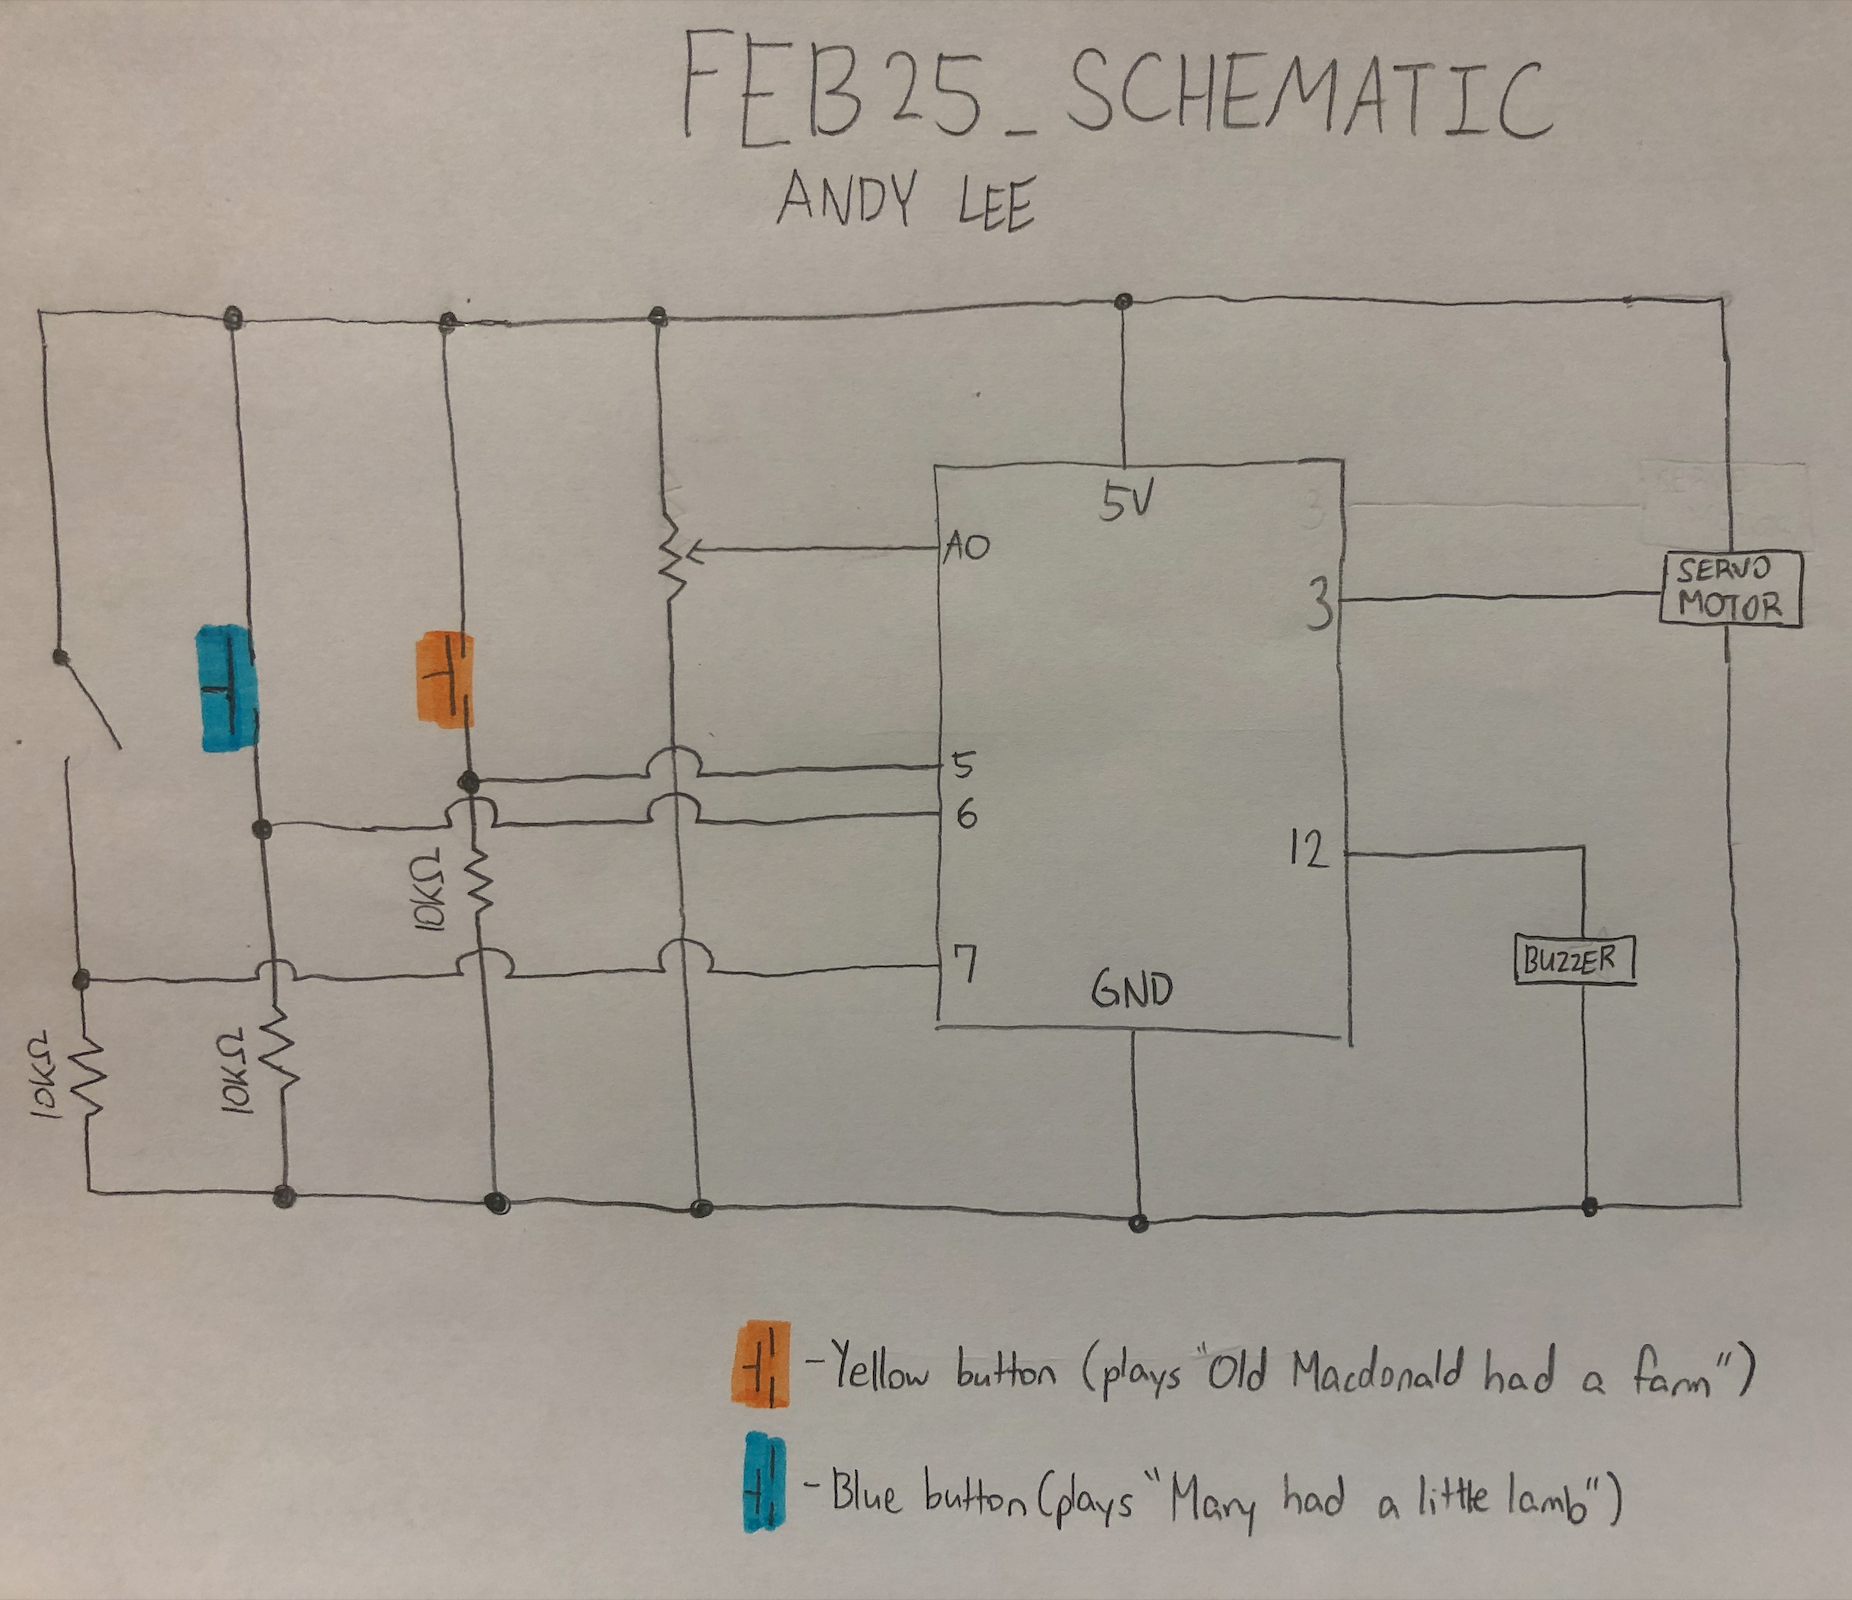 FEB25_SCHEMATIC
ANDY LEE
5V
3
A0
SERVO
MOTOR
3
5
6
12
10KΩ
7
GND
BUZZER
10KΩ
10KΩ
-Yellow button (plays "Old Macdonald had a farm")
-Blue button (plays "Mary had a little lamb")